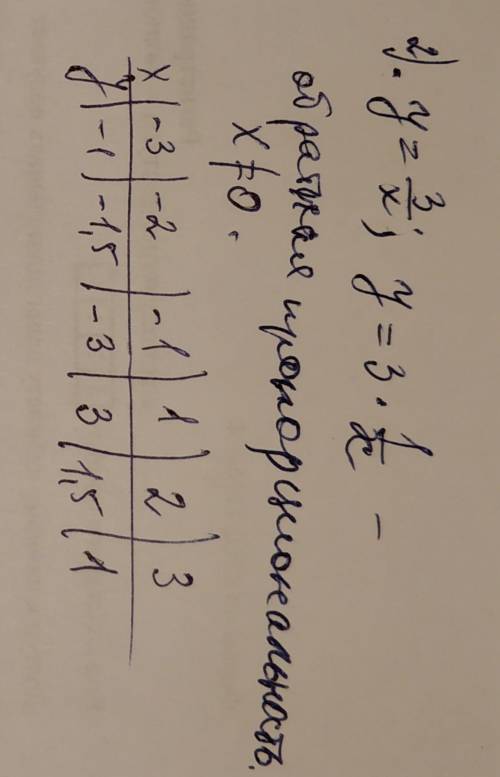 2). y = 3/x; y = 3 · 1/x –
обратная пропорциональность.
x ≠ 0.
x | -3 | -2 | -1 | 1 | 2 | 3
y | -1 | -1,5 | -3 | 3 | 1,5 | 1